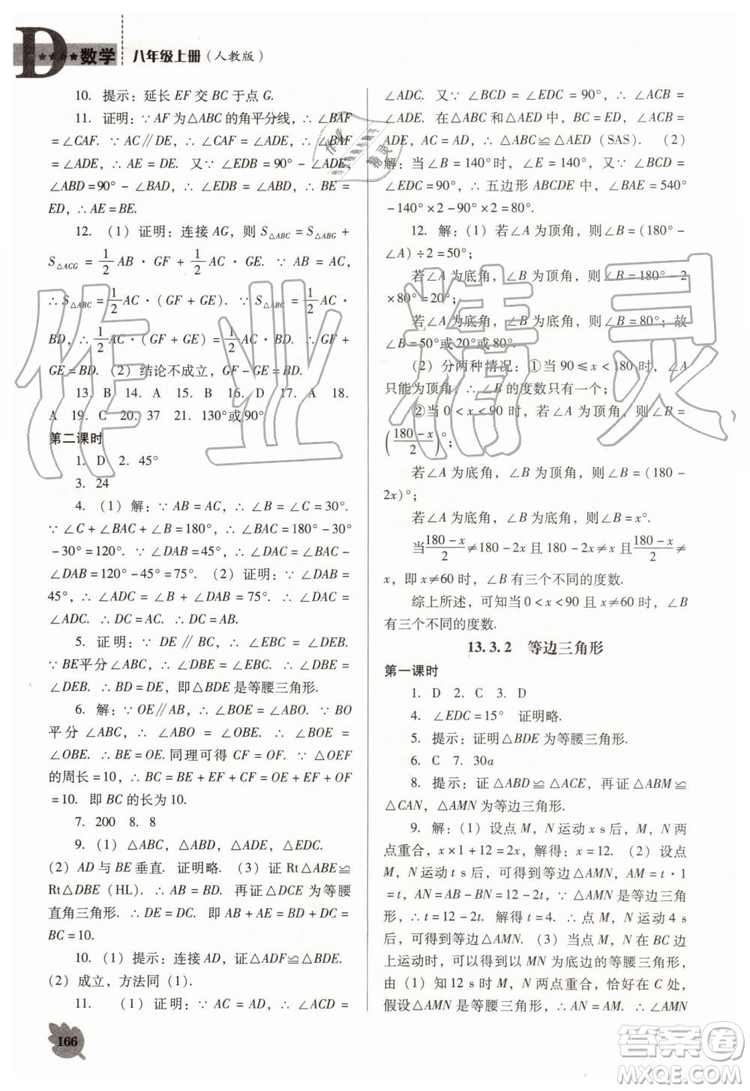 D 数学 八年级上册(人教版)
10. 提示:延长 EF 交 BC 于点 G.
11. 证明:∵ AF 为△ABC 的角平分线,∴ ∠BAF
=∠CAF. ∵ AC∥DE,∴ ∠CAF=∠ADE,∴ ∠BAF
=∠ADE. ∴ AE=DE. 又∵ ∠EDB=90°-∠ADE,
∠ABD=90°-∠BAD,∴ ∠EDB=∠ABD,∴ BE=
ED,∴ AE=BE.
12. (1)证明:连接 AG,则 S△ABC=S△ABG+
S△ACG=1/2 AB·GF+1/2 AC·GE. ∵ AB=AC,
∴S△ABC=1/2 AC·(GF+GE). ∵ S△ABC=1/2 AC·
BD,∴ 1/2 AC·(GF+GE)=1/2 AC·BD. ∴ GF+
GE=BD. (2)结论不成立,GF-GE=BD.
13. B 14. A 15. B 16. D 17. A 18.
A 19. C 20. 37 21. 130°或90°
第二课时
1. D 2. 45°
3. 24
4. (1)解:∵ AB=AC,∴ ∠B=∠C=30°.
∵ ∠C+∠BAC+∠B=180°,∴ ∠BAC=180°-30°
-30°=120°. ∵ ∠DAB=45°,∴ ∠DAC=∠BAC-
∠DAB=120°-45°=75°. (2)证明:∵ ∠DAB=
45°,∴ ∠ADC=∠B+∠DAB=75°,∴ ∠DAC=
∠ADC. ∴ DC=AC. ∴ DC=AB.
5. 证明:∵ DE∥BC,∴ ∠DEB=∠EBC.
∵BE平分∠ABC,∴ ∠DBE=∠EBC,∴ ∠DEB=
∠DBE. ∴ BD=DE. ∴ △DBE 是等腰三角形.
6. 解:∵ OE∥AB,∴ ∠BOE=∠ABO. ∵ BO
平分∠ABC,∴ ∠ABO=∠OBE. ∴ ∠BOE=
∠OBE. ∴ BE=OE. 同理可得 CF=OF. ∵ △OEF
的周长=10. ∴ BC=BE+EF+FC=OE+EF+OF
=10. 即 BC 的长为 10.
7. 200 8. 8
9. (1)△ABE,△ADE,△EDC.
(2)AD 与 BE 垂直. 证明略. (3)证 Rt△ABE≌
Rt△DBE(HL). 再证△DCE 为等腰
直角三角形. ∴ DE=DC. 即 AB+AE=BD+DC
=10.
10. (1)提示:连接 AD,证△ADF≌△BDE.
(2)成立,方法同(1).
11. (1)证明:∵ AC=AD,∴ ∠ACD=
∠ADC. ∵ ∠BCD=∠EDC=90°,∴ ∠ACB=
∠ADE. 在△ABC 和△AED 中,BC=ED,∠ACB=
∠ADE,AC=AD,∴ △ABC≌△AED(SAS). (2)
解:当∠B=140°时,∠E=140°. 又∵ ∠BCD=
∠EDC=90°,∴ 五边形 ABCDE 中,∠BAE=540°
-140°×2-90°×2=80°.
12. 解:(1)若∠A 为顶角,则∠B=(180°-
∠A)÷2=50°;
若∠A 为底角,∠B 为顶角,则∠B=180°-2
×80°=20°;
若∠A 为底角,∠B 为底角,则∠B=80°;故
∠B=50°或20°或80°.
(2)分两种情况:①当90≤x<180时,∠A
只能为顶角,∴ ∠B 的度数只有一个;
②当0<x<90时,若∠A 为顶角,则∠B=
(180-x/2)°;
若∠A 为底角,∠B 为顶角,则∠B=(180-
2x)°;
若∠A 为底角,∠B 为底角,则∠B=x°.
当180-x/2≠180-2x且180-2x≠x且180-x/2≠
x,即 x≠60时,∠B 有三个不同的度数.
综上所述,可知0<x<90且x≠60时,∠B
有三个不同的度数.
13.3.2 等边三角形
第一课时
1. D 2. C 3. D
4. ∠EDC=15° 证明略.
5. 提示:证明△BDE 为等腰三角形.
6. C 7. 30a
8. 提示:证△ABD≌△ACE,再证△ABM≌
△CAN,△AMN 为等边三角形.
9. 解:(1)设点 M,N 运动 x s 后,M,N 两
点重合,x×1+12=2x. 解得 x=12. (2)设点
M,N 运动 t s 后,可得到等边△AMN. AM=t·1
=t,AN=AB-BN=12-2t. 解得 t=4. ∴ 点 M,
N 运动 4 s 后,可得到等边△AMN. (3)当点 M,
N 在 BC 边上运动时,可以得到等腰△AMN. 理
由:由(1)知 12 s 时 M,N 重合,恰好在 C 处,
假设△AMN 是等腰三角形,∴ AN=AM. ∴ ∠AMN
166
作业精灵
作业精灵
答案圈
MXQE.COM